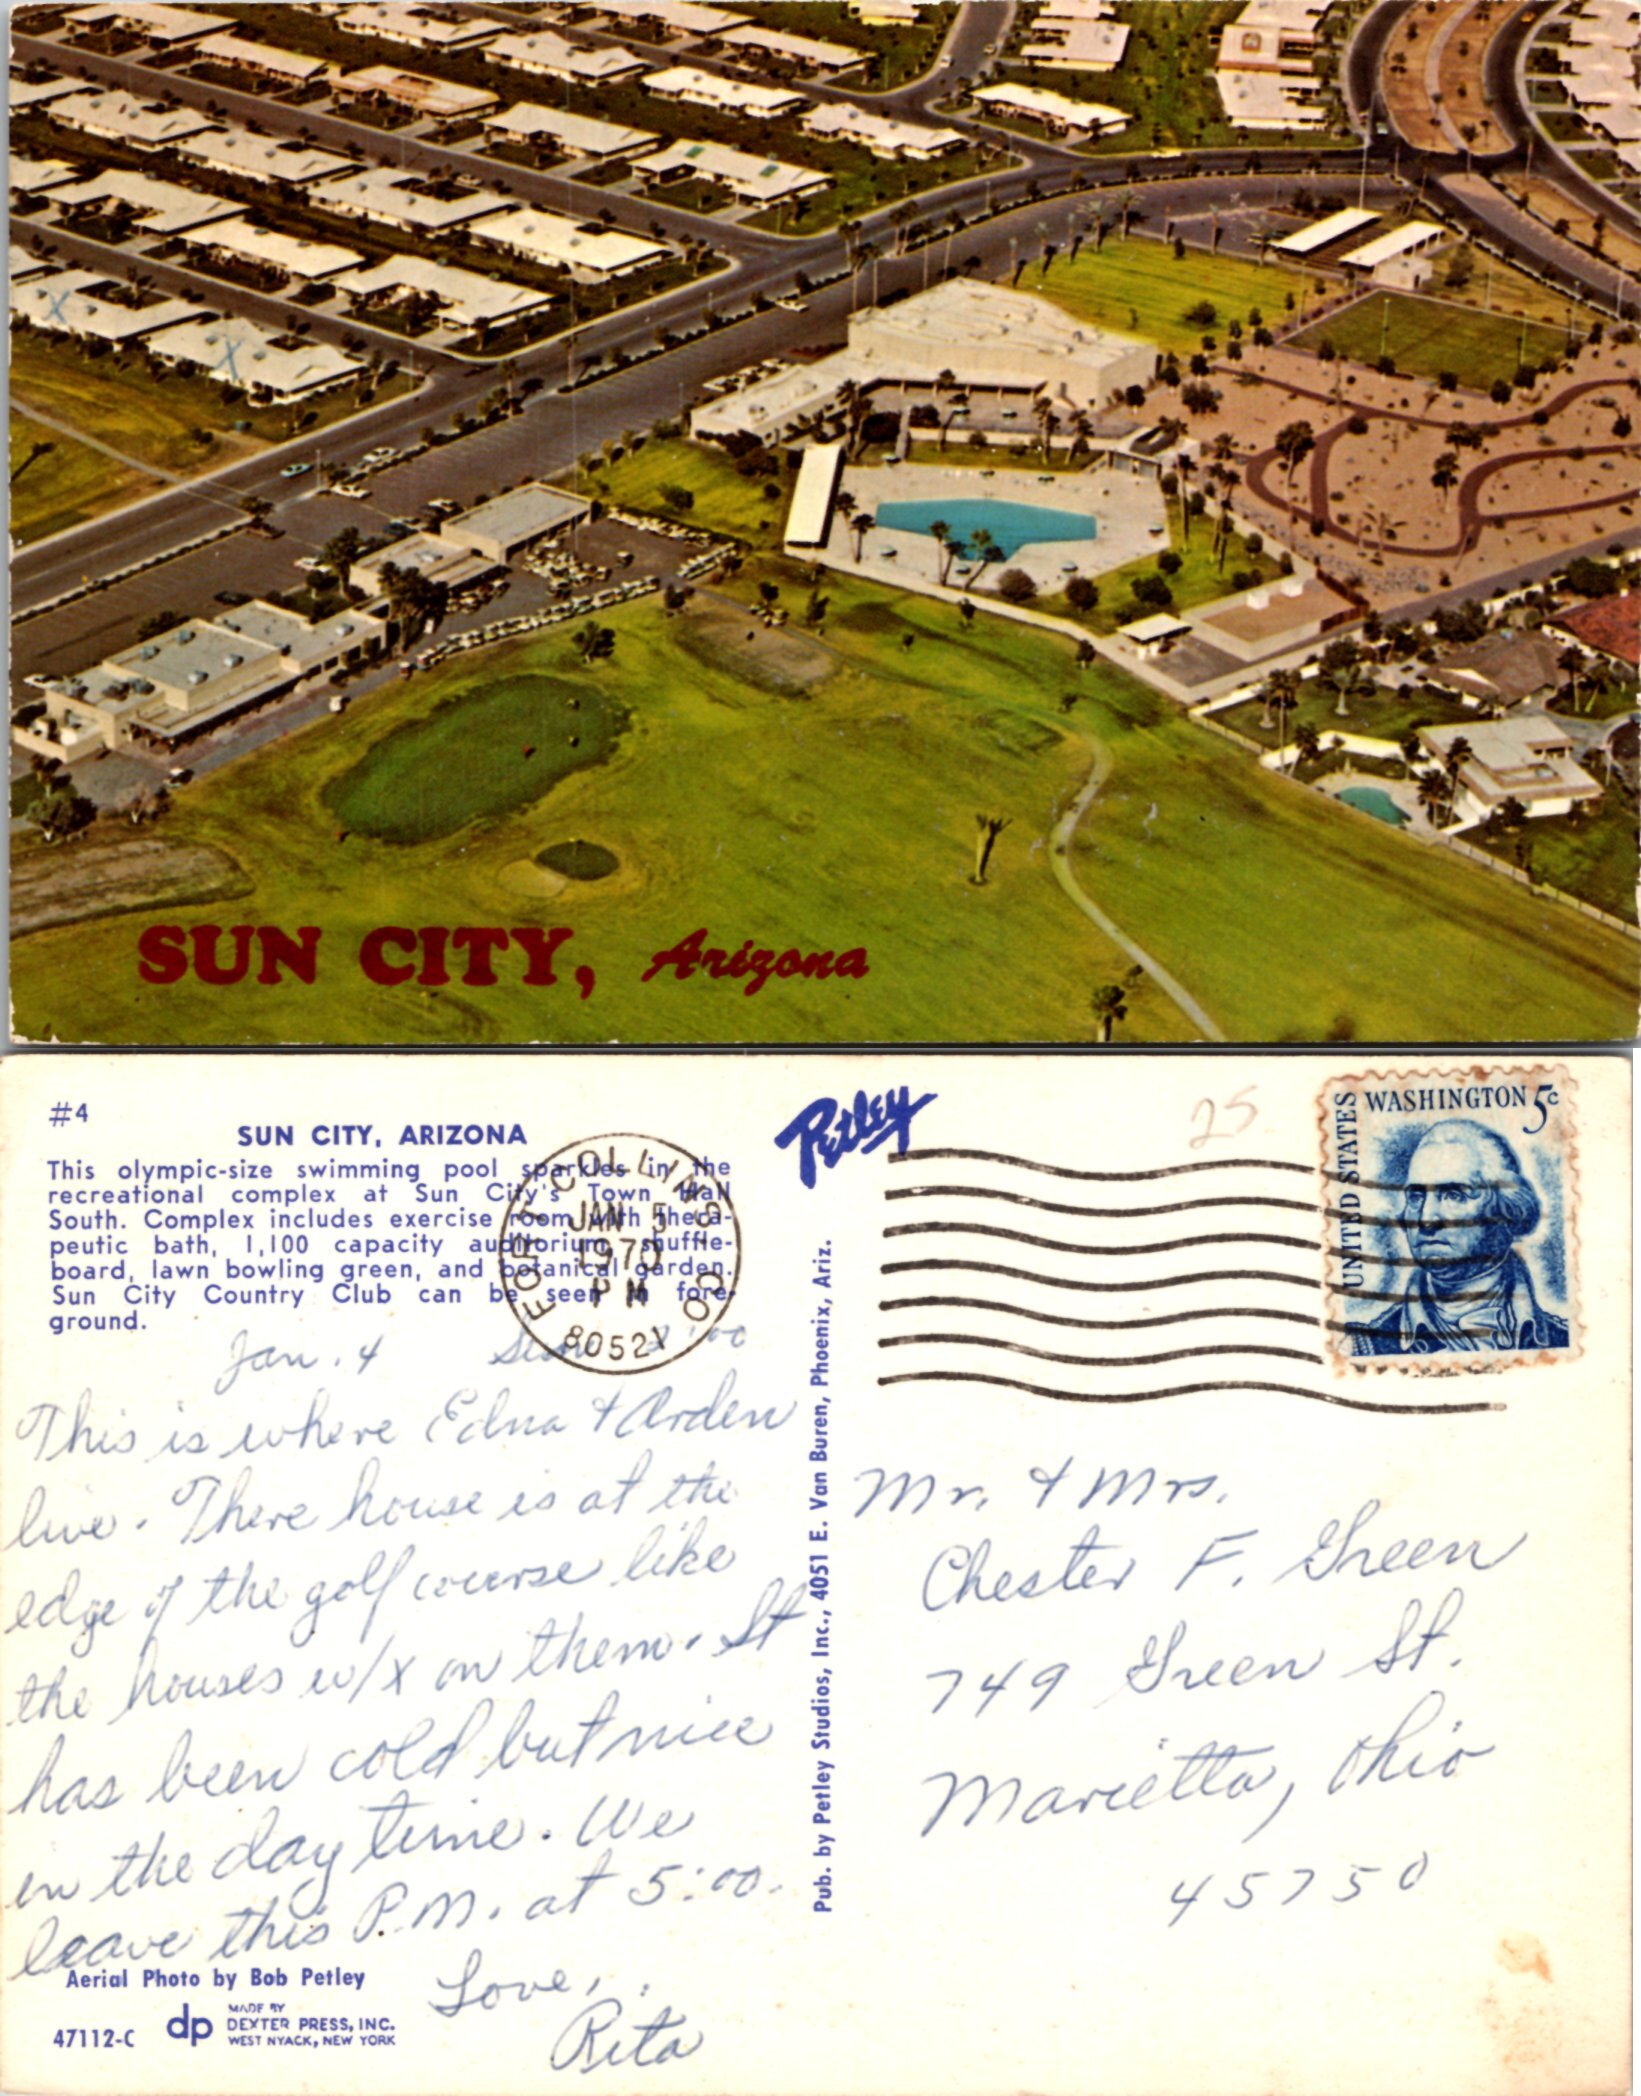 SUN CITY, Arizona
#4
SUN CITY, ARIZONA
This olympic-size swimming pool sparkles in the
recreational complex at Sun City's Town Hall
South. Complex includes exercise room with thera-
peutic bath, 1,100 capacity auditorium, shuffle-
board, lawn bowling green, and botanical garden.
Sun City Country Club can be seen in fore-
ground.
Jan. 4
This is where Edna & Arden
live. There house is at the
edge of the golf course like
the houses w/x on them. It
has been cold but nice
in the day time. We
leave this P.M. at 5:00.
Love,
Rita
Aerial Photo by Bob Petley
47112-C
dp
MADE BY
DEXTER PRESS, INC.
WEST NYACK, NEW YORK
Petley
Pub. by Petley Studios, Inc., 4051 E. Van Buren, Phoenix, Ariz.
FORT COLLINS CO
JAN 5
1970
PM
80521
25
UNITED STATES
WASHINGTON 5c
Mr. & Mrs.
Chester F. Green
749 Green St.
Marietta, Ohio
45750